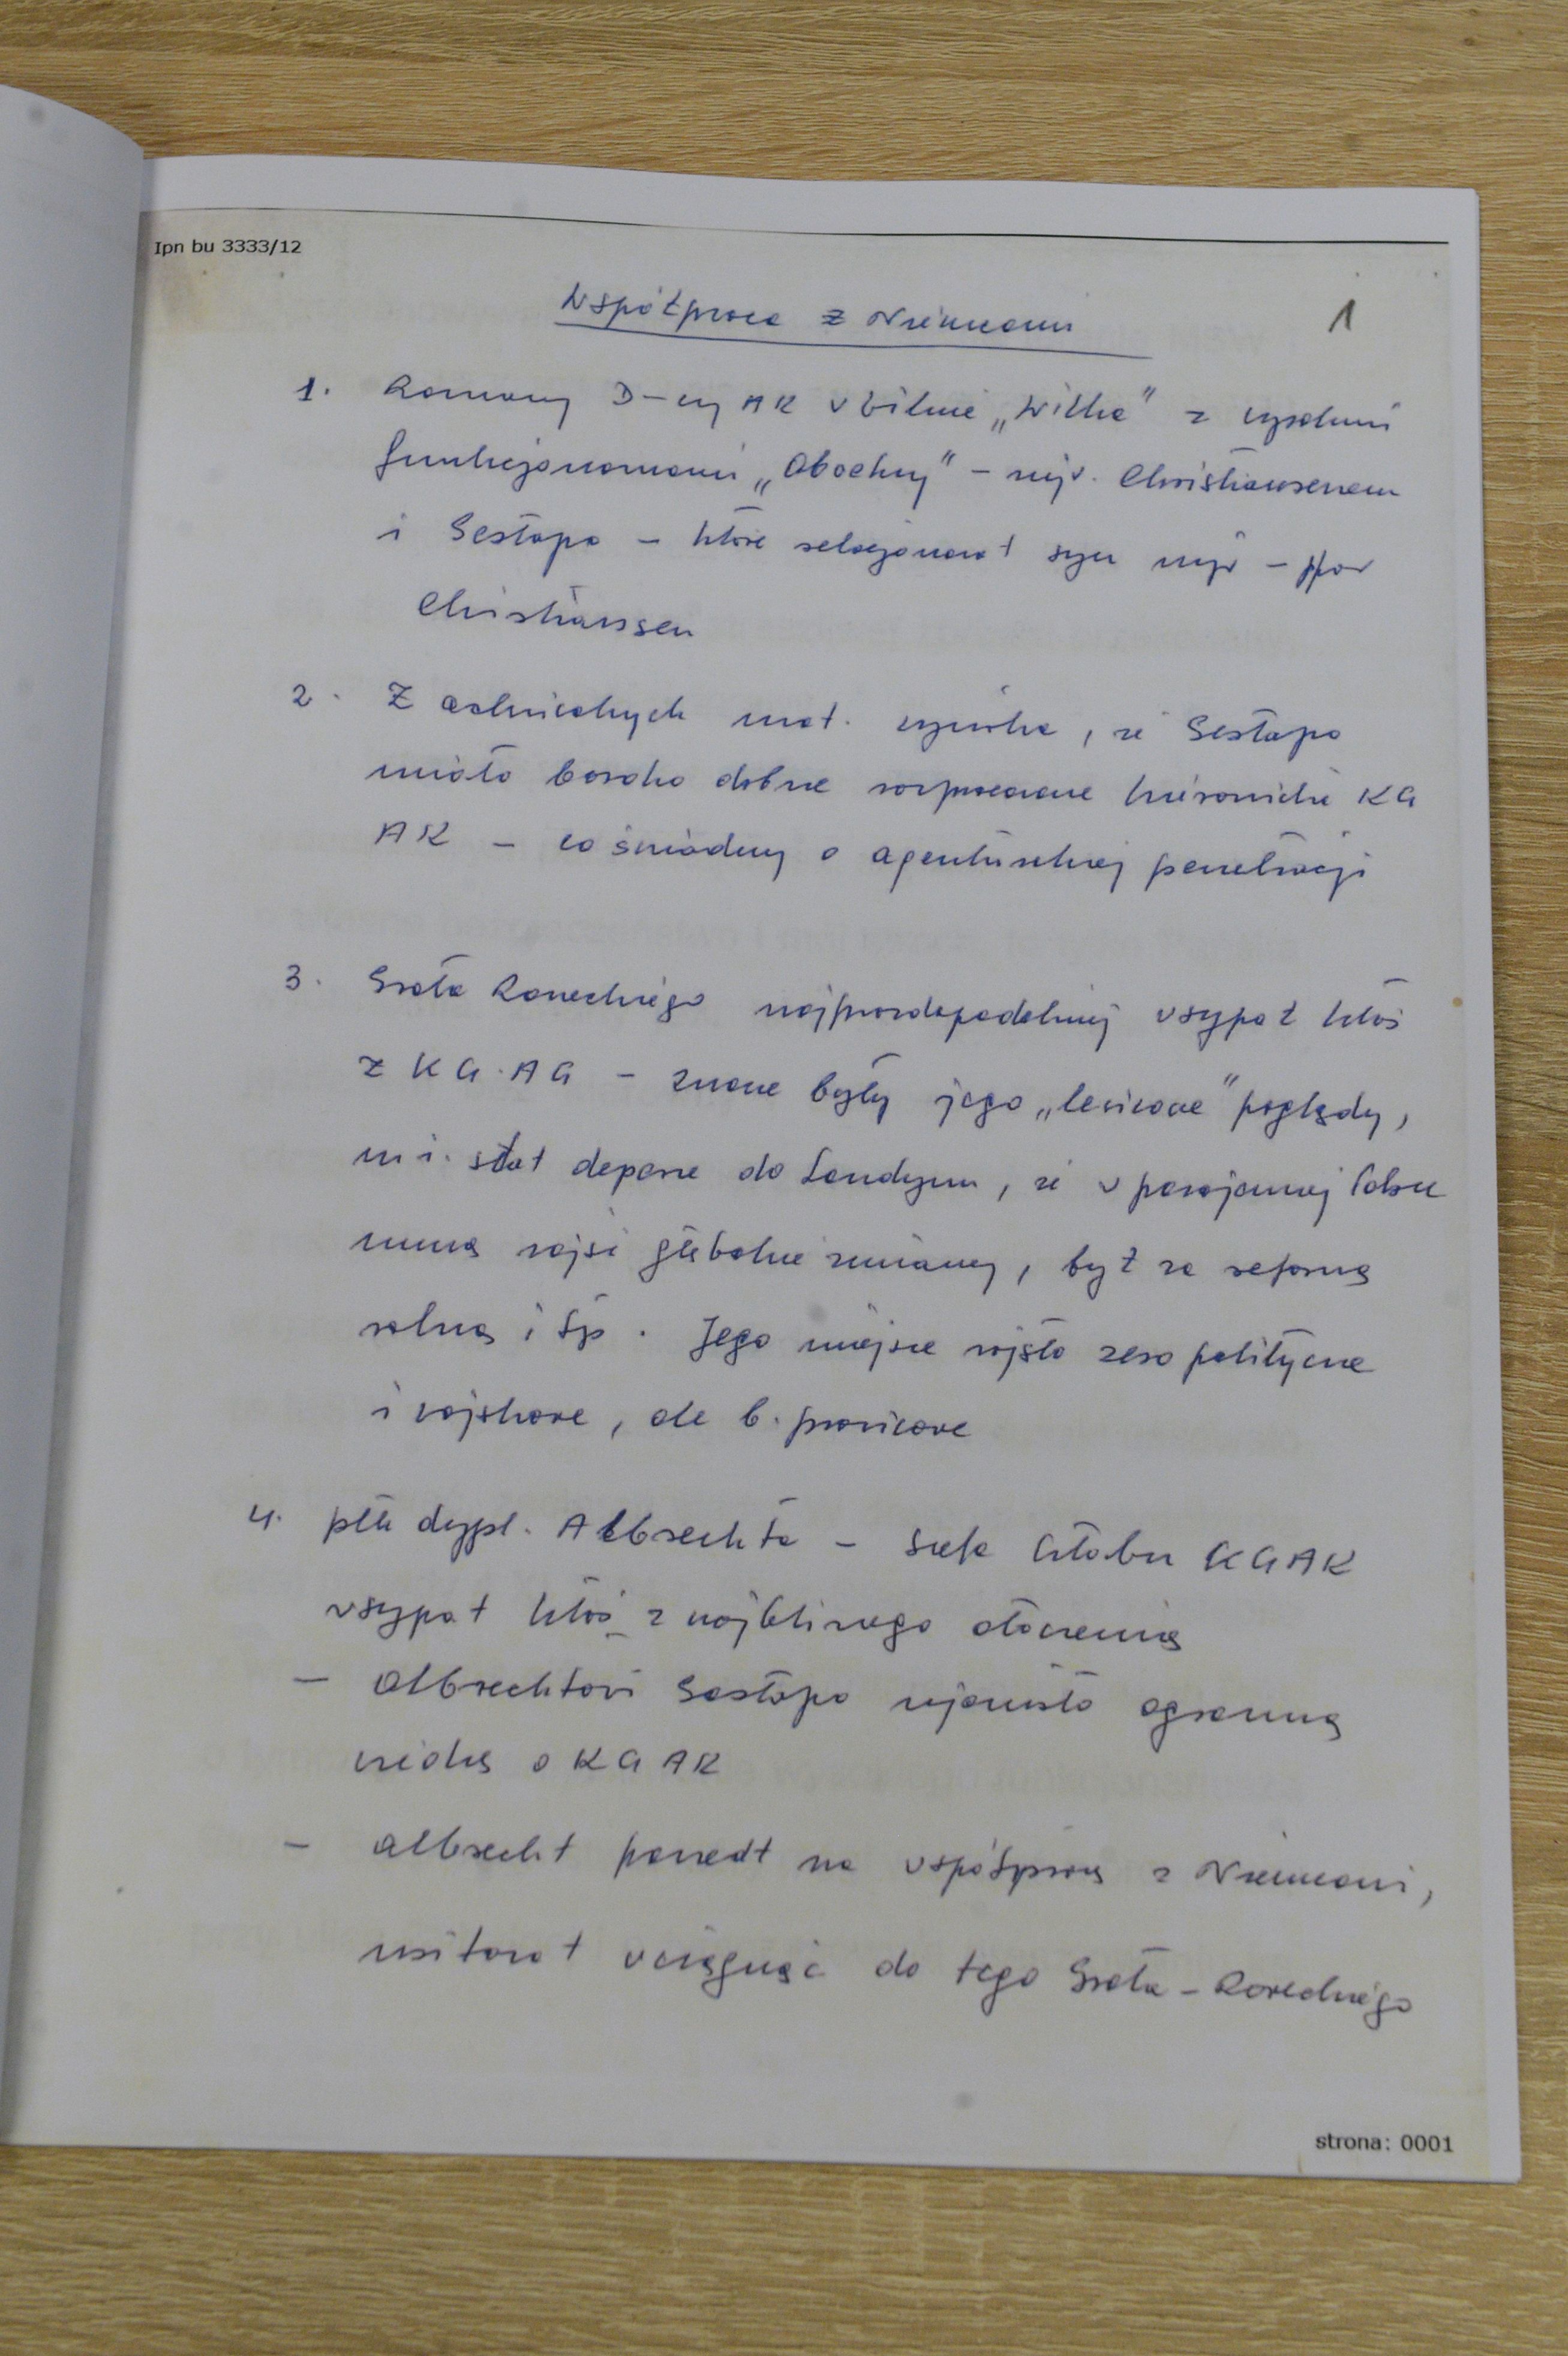 Ipn bu 3333/12
1
Współpraca z Niemcami
1. Rozmowy D-cy AK w Wilnie „Wilka" z wysokimi
funkcjonariuszami „Abwehry" – mjr. Christiansenem
i Gestapo – które relacjonował syn mjr – por
Christiansen
2. Z archiwalnych mat. wynika, że Gestapo
miało bardzo dobrze rozpracowane kierownictwo KG
AK – co świadczy o agenturalnej penetracji
3. Grota Roweckiego najprawdopodobniej wsypał ktoś
z KG. AG – znane były jego „lewicowe" poglądy,
m i. słał depesze do Londynu, że w powojennej Polsce
muszą zajść głębokie zmiany, był za reformą
rolną i tp. Jego miejsce zajęło zero polityczne
i wojskowe, ale b. prawicowe
4. płk dypl. Albrechta – szefa sztabu KGAK
wsypał ktoś z najbliższego otoczenia
– Albrechtowi Gestapo ujawniło ogromną
wiedzę o KG AK
– Albrecht poszedł na współpracę z Niemcami,
usiłował wciągnąć do tego Grota-Roweckiego
strona: 0001